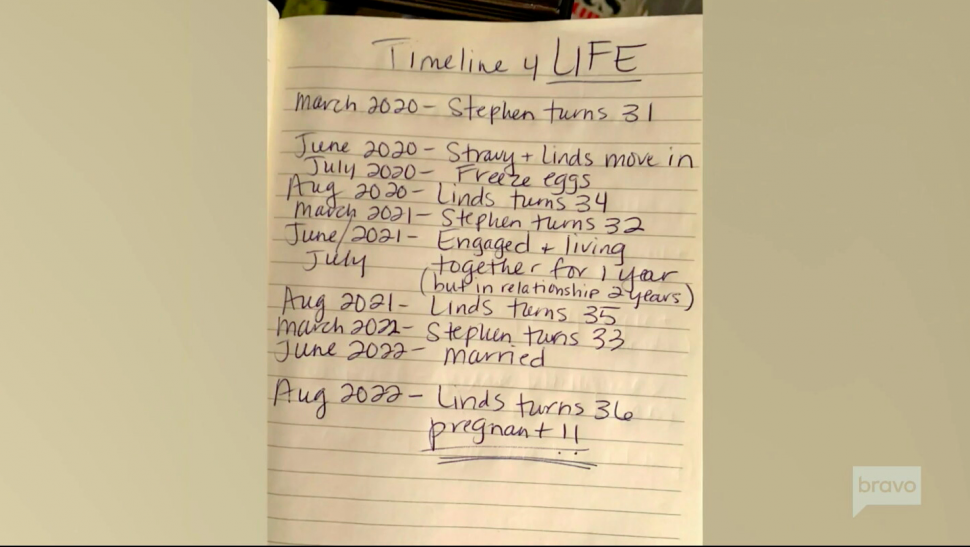 Timeline 4 LIFE
March 2020 - Stephen turns 31
June 2020 - Stravy + Linds move in
July 2020 - Freeze eggs
Aug 2020 - Linds turns 34
March 2021 - Stephen turns 32
June/2021 - Engaged + living
July together for 1 year
(but in relationship 2 years)
Aug 2021 - Linds turns 35
March 2022 - Stephen turns 33
June 2022 - married
Aug 2022 - Linds turns 36
pregnant!!
bravo